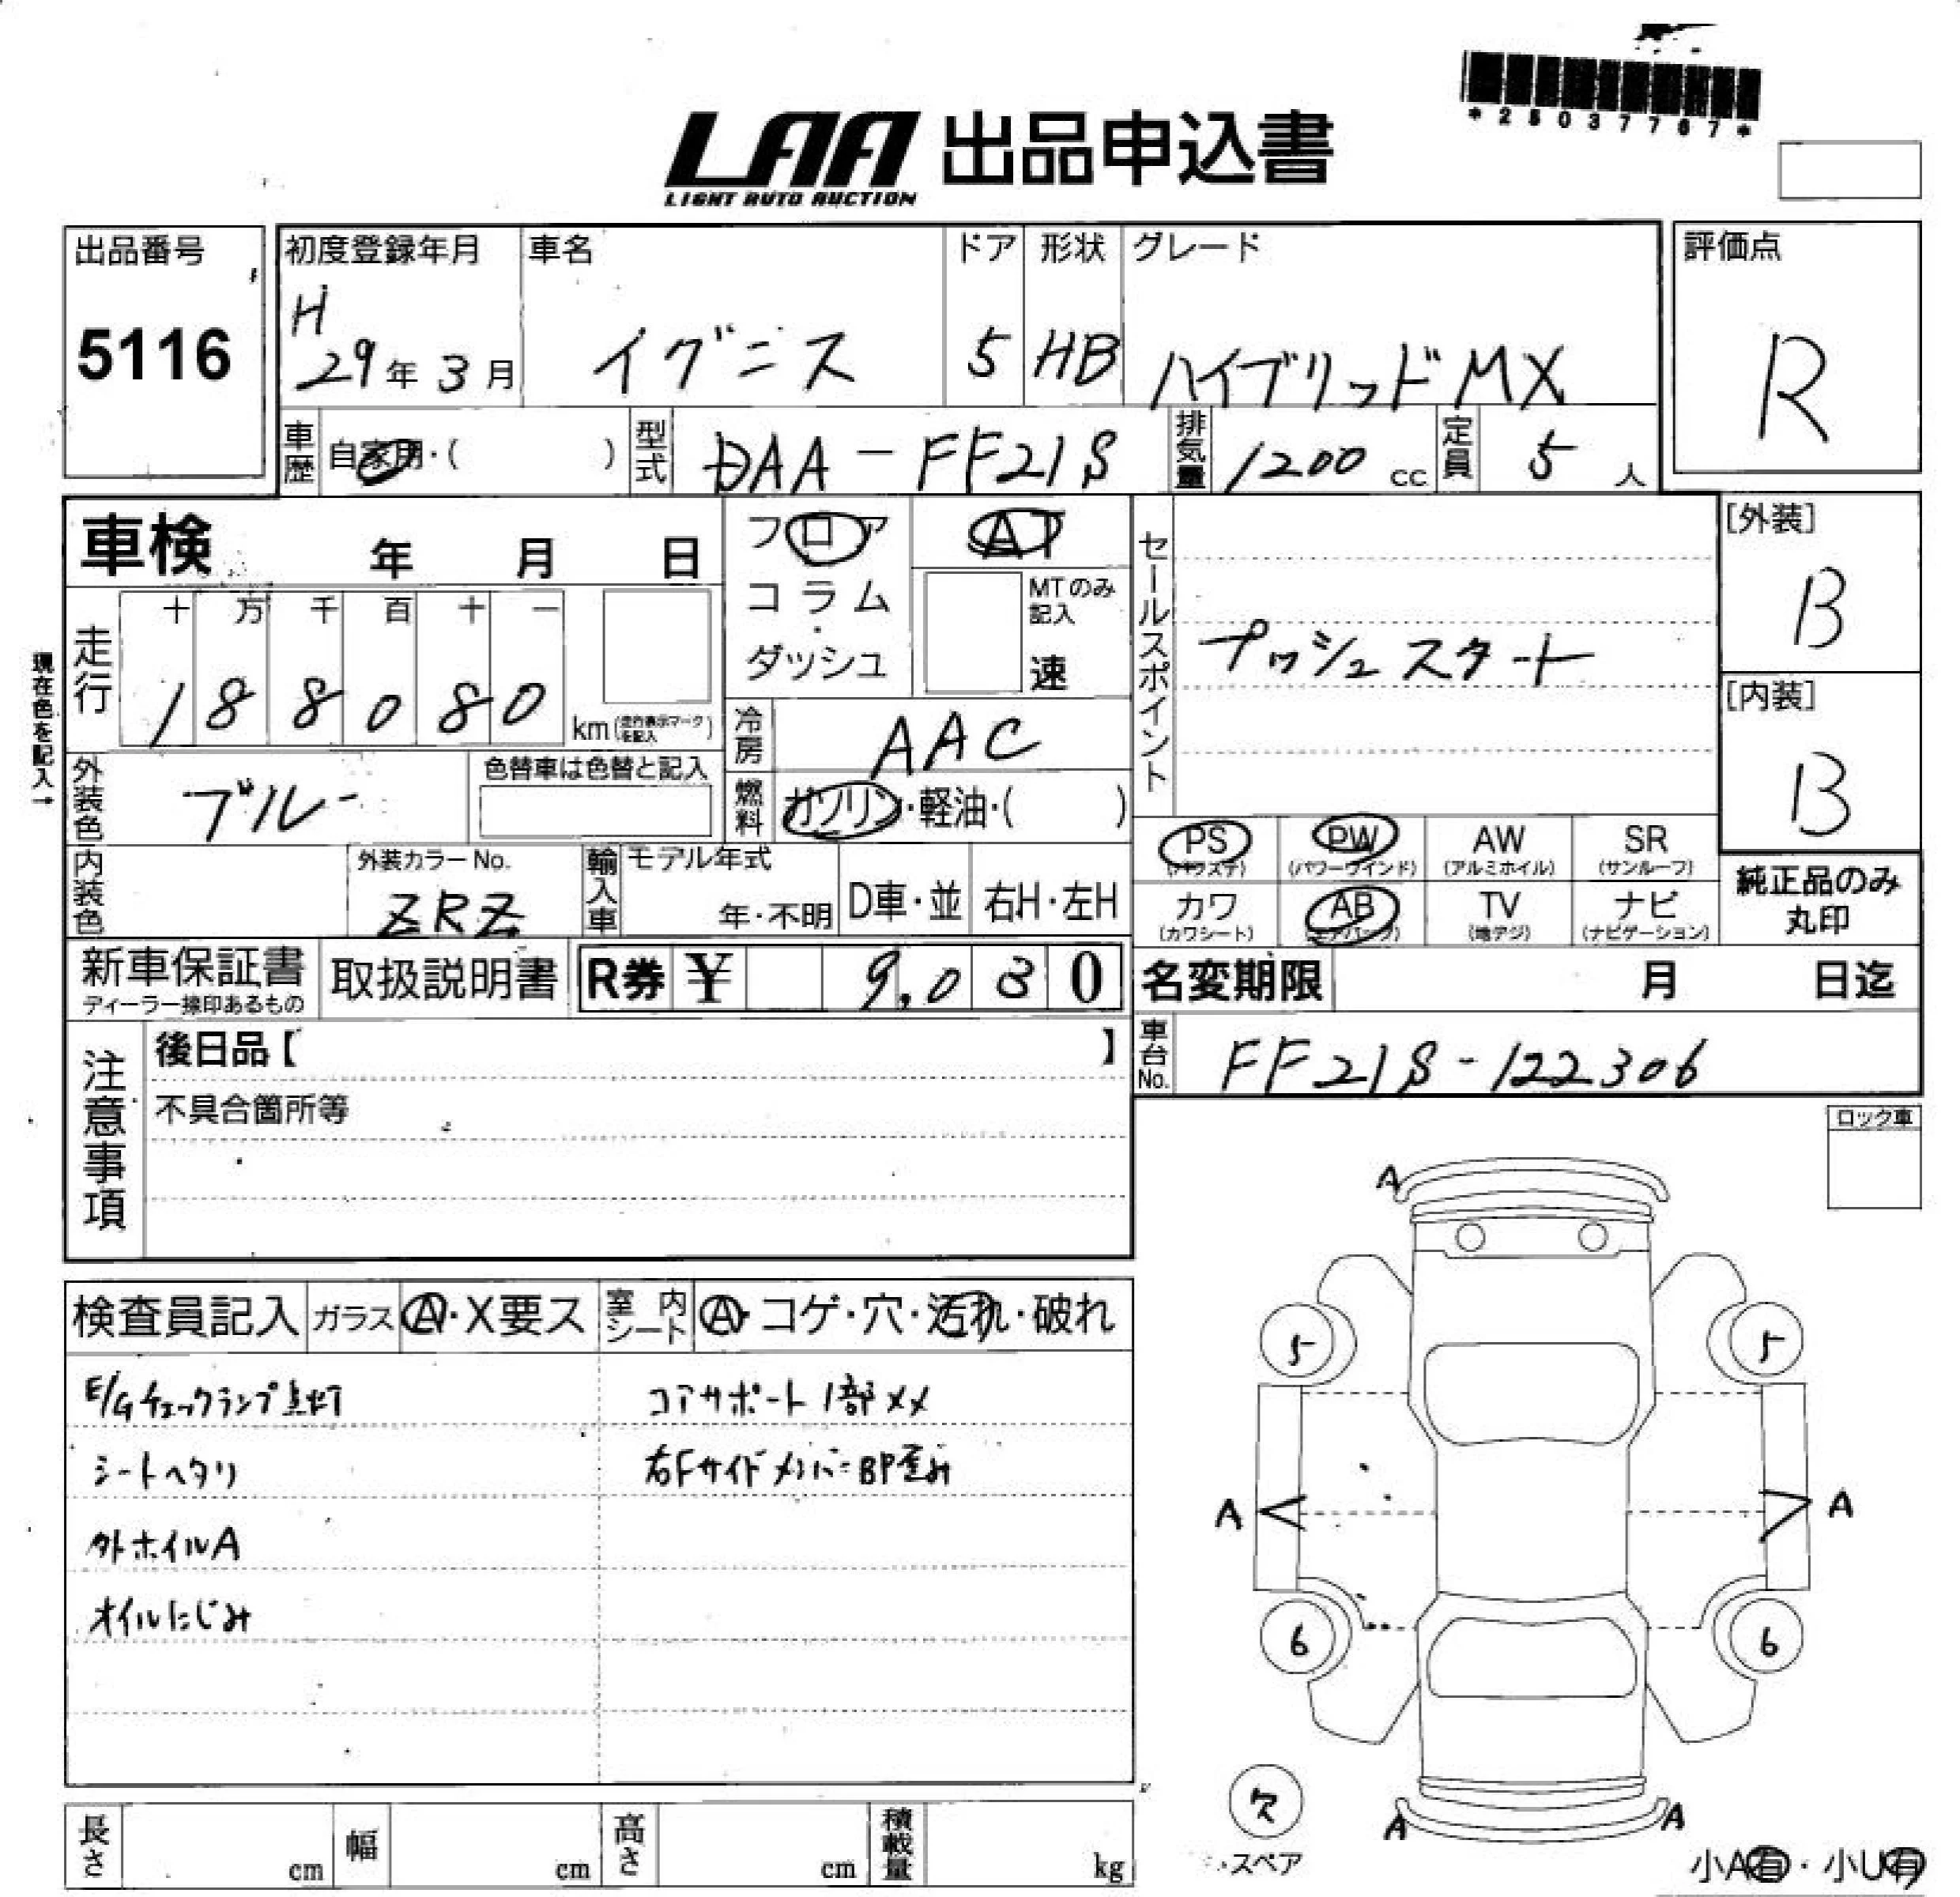 *25037767*
LAA 出品申込書
LIGHT AUTO AUCTION
出品番号
5116
初度登録年月
H
29年 3月
車名
イグニス
ドア
5
形状
HB
グレード
ハイブリッドMX
評価点
R
車歴 自家用・( )
型式 DAA-FF21S
排気量 1200 cc
定員 5 人
車検 年 月 日
フロア
コラム
・
ダッシュ
AT
MTのみ
記入
速
セールスポイント
プッシュスタート
[外装]
B
[内装]
B
現在色を記入→
走行
十 万 千 百 十 一
1 8 8 0 8 0
km(走行表示マークを記入)
冷房 AAC
外装色 ブルー
色替車は色替と記入
燃料 ガソリン・軽油・( )
PS
(パワステ)
PW
(パワーウインド)
AW
(アルミホイル)
SR
(サンルーフ)
カワ
(カワシート)
AB
(エアバッグ)
TV
(地デジ)
ナビ
(ナビゲーション)
純正品のみ
丸印
内装色
外装カラーNo.
ZRZ
輸入車
モデル年式
年・不明
D車・並
右H・左H
新車保証書
ディーラー捺印あるもの
取扱説明書
R券 ¥ 9,030
名変期限 月 日迄
注意事項
後日品【 】
不具合箇所等
車台No. FF21S-122306
ロック車
検査員記入
ガラス A・X要ス
室内シート A・コゲ・穴・汚れ・破れ
E/Gチェックランプ点灯
シートヘタリ
外ホイルA
オイルにじみ
コアサポート1部XX
右Fサイドメンバー BP歪み
A
5
5
A
A
6
6
A
A
欠
・スペア
小A有・小U有
長さ cm
幅 cm
高さ cm
積載量 kg